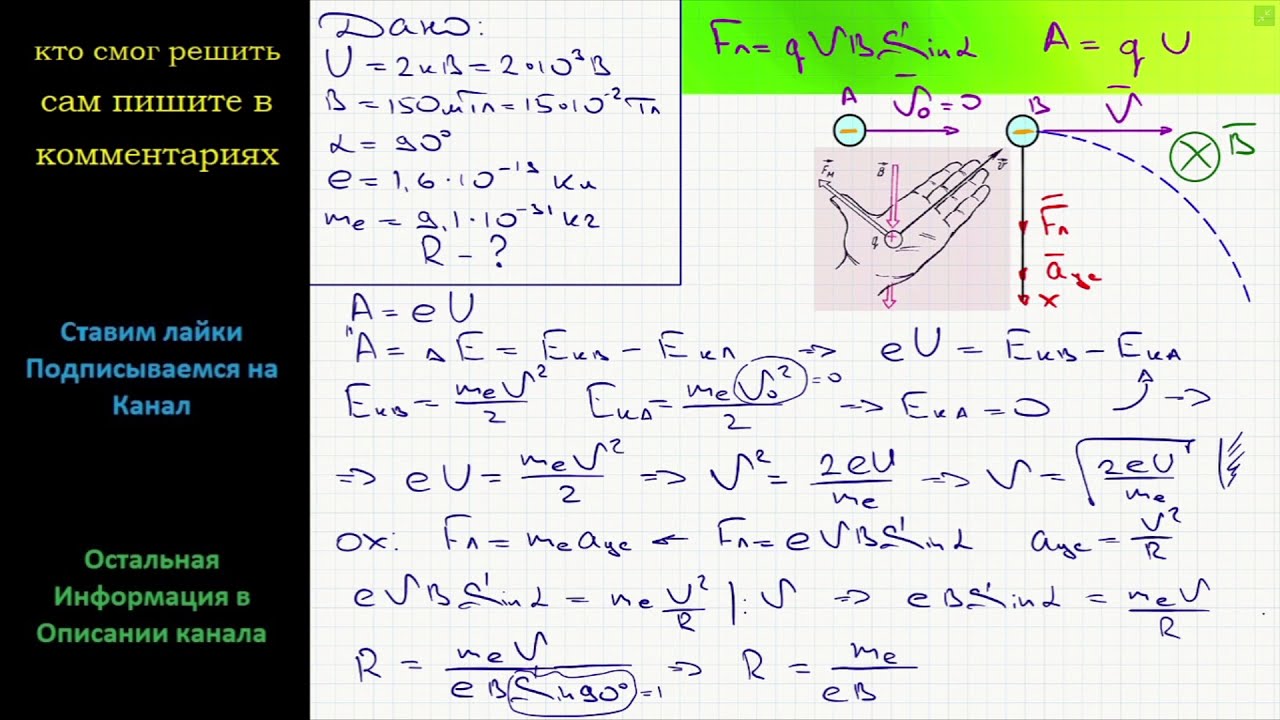 кто смог решить
сам пишите в
комментариях
Ставим лайки
Подписываемся на
Канал
Остальная
Информация в
Описании канала
Дано:
U = 2кВ = 2·10³В
B = 150мТл = 15·10⁻²Тл
α = 90°
e = 1,6·10⁻¹⁹ Кл
mₑ = 9,1·10⁻³¹ кг
R - ?
Fл = qVB Sinα A = qU
A V̅₀ = 0 B V̅ B̅
F̅л
a̅цс
x
F⃗м B⃗ v⃗
q +
A = eU
A = ΔE = Eкв - Eкл => eU = Eкв - EкA
Eкв = mₑV²/2 EкA = mₑV₀²/2 = 0 => EкA = 0 =>
=> eU = mₑV²/2 => V² = 2eU/mₑ => V = √(2eU/mₑ)
ox: Fл = mₑaцс ← Fл = eVB Sinα aцс = V²/R
eVB Sinα = mₑ V²/R |: V => eB Sinα = mₑV/R
R = mₑV/(eB Sin90°) = 1 => R = mₑ/eB